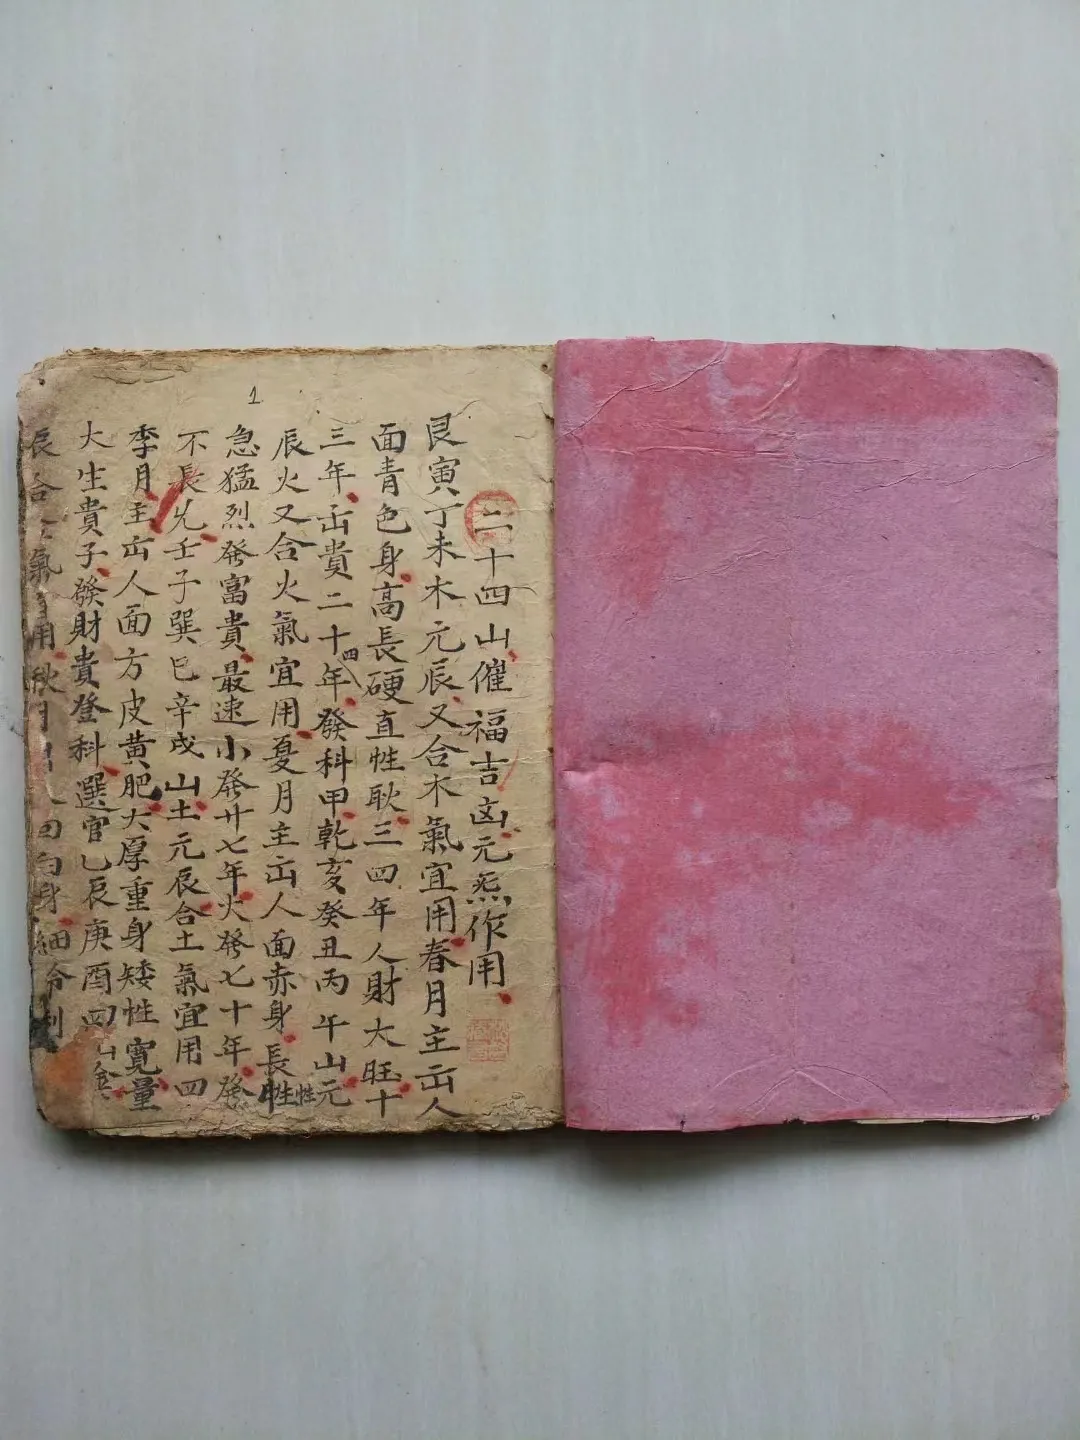 1
二十四山催福吉凶元炁作用
艮寅丁未木元辰又合木氣宜用春月主出人
面青色身高長硬直性耿三四年人財大旺十
三年出貴二十四年發科甲乾亥癸丑丙午山元
辰火又合火氣宜用夏月主出人面赤身長性
急猛烈發富貴最速小發廿七年大發七十年發
不長久壬子巽巳辛戌山土元辰合土氣宜用四
季月主出人面方皮黄肥大厚重身矮性寬量
大生貴子發財貴登科選官乙辰庚酉四山金
辰合氣用秋月白身細